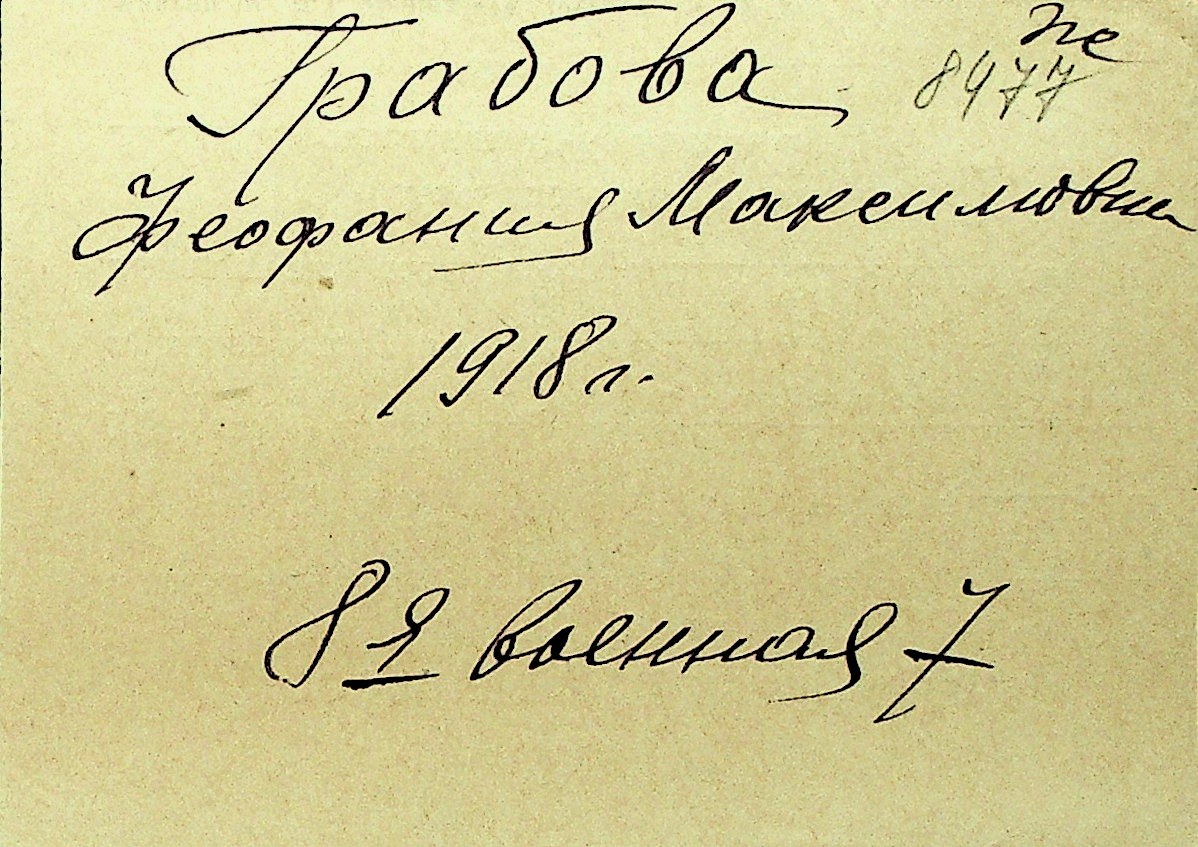 Грабова
8477
Феофания Максимовна
1918 г.
8я военная 7